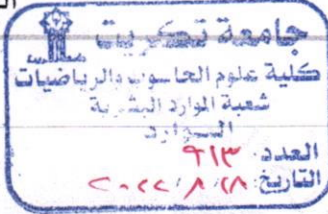 جامعة تكريت
كلية علوم الحاسوب والرياضيات
شعبة الموارد البشرية
العدد: ٩١٣
التاريخ: ٢٨ / ٨ / ٢٠٢٢